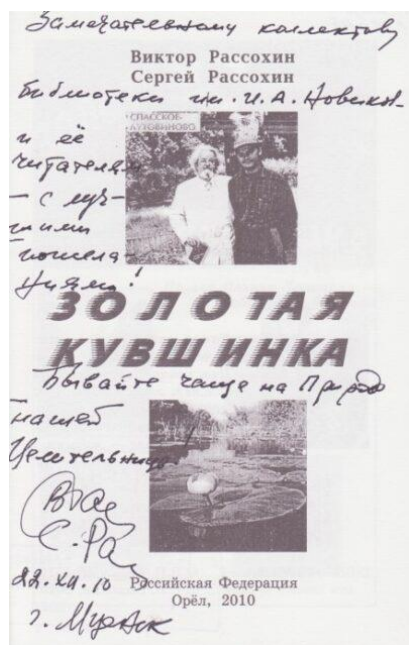 Замечательному коллективу
Виктор Рассохин
Сергей Рассохин
библиотеки им. И.А. Новиков-
СПАССКОЕ-
ЛУТОВИНОВО
и её
читателям
– с луч-
шими
пожела-
ниями!
ЗОЛОТАЯ
КУВШИНКА
Бывайте чаще на Природе
нашей
Целительнице!
С. Ра
22.XII.10
Российская Федерация
Орёл, 2010
г. Мценск